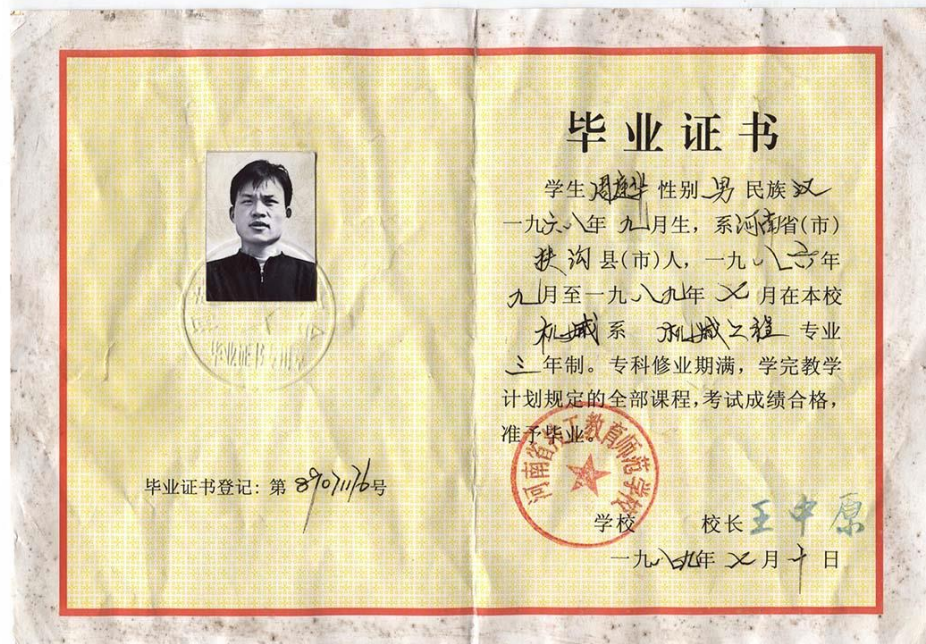 毕业证书
学生周 华 性别 男 民族 汉
一九六八年 九月生，系河南省(市)
扶沟县(市)人，一九八六年
九月至一九八九年 七 月在本校
机械系 机械工程 专业
三年制。专科修业期满，学完教学
计划规定的全部课程，考试成绩合格，
准予毕业。
河南省 工教育师范学校
学校 校长 王中原
一九八九年 七 月 十 日
毕业证书专用章
毕业证书登记：第 号